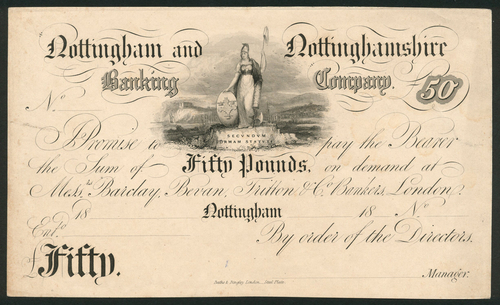 Nottingham and Nottinghamshire
Banking Company.
No. 50
SECUNDUM
FORMAM STATUTI
I Promise to pay the Bearer
the Sum of Fifty Pounds, on demand at
Messrs. Barclay, Bevan, Tritton, & Co. Bankers, London.
Nottingham 18 No.
Entd. 18
By order of the Directors,
£Fifty.
Manager.
London. Steel Plate.